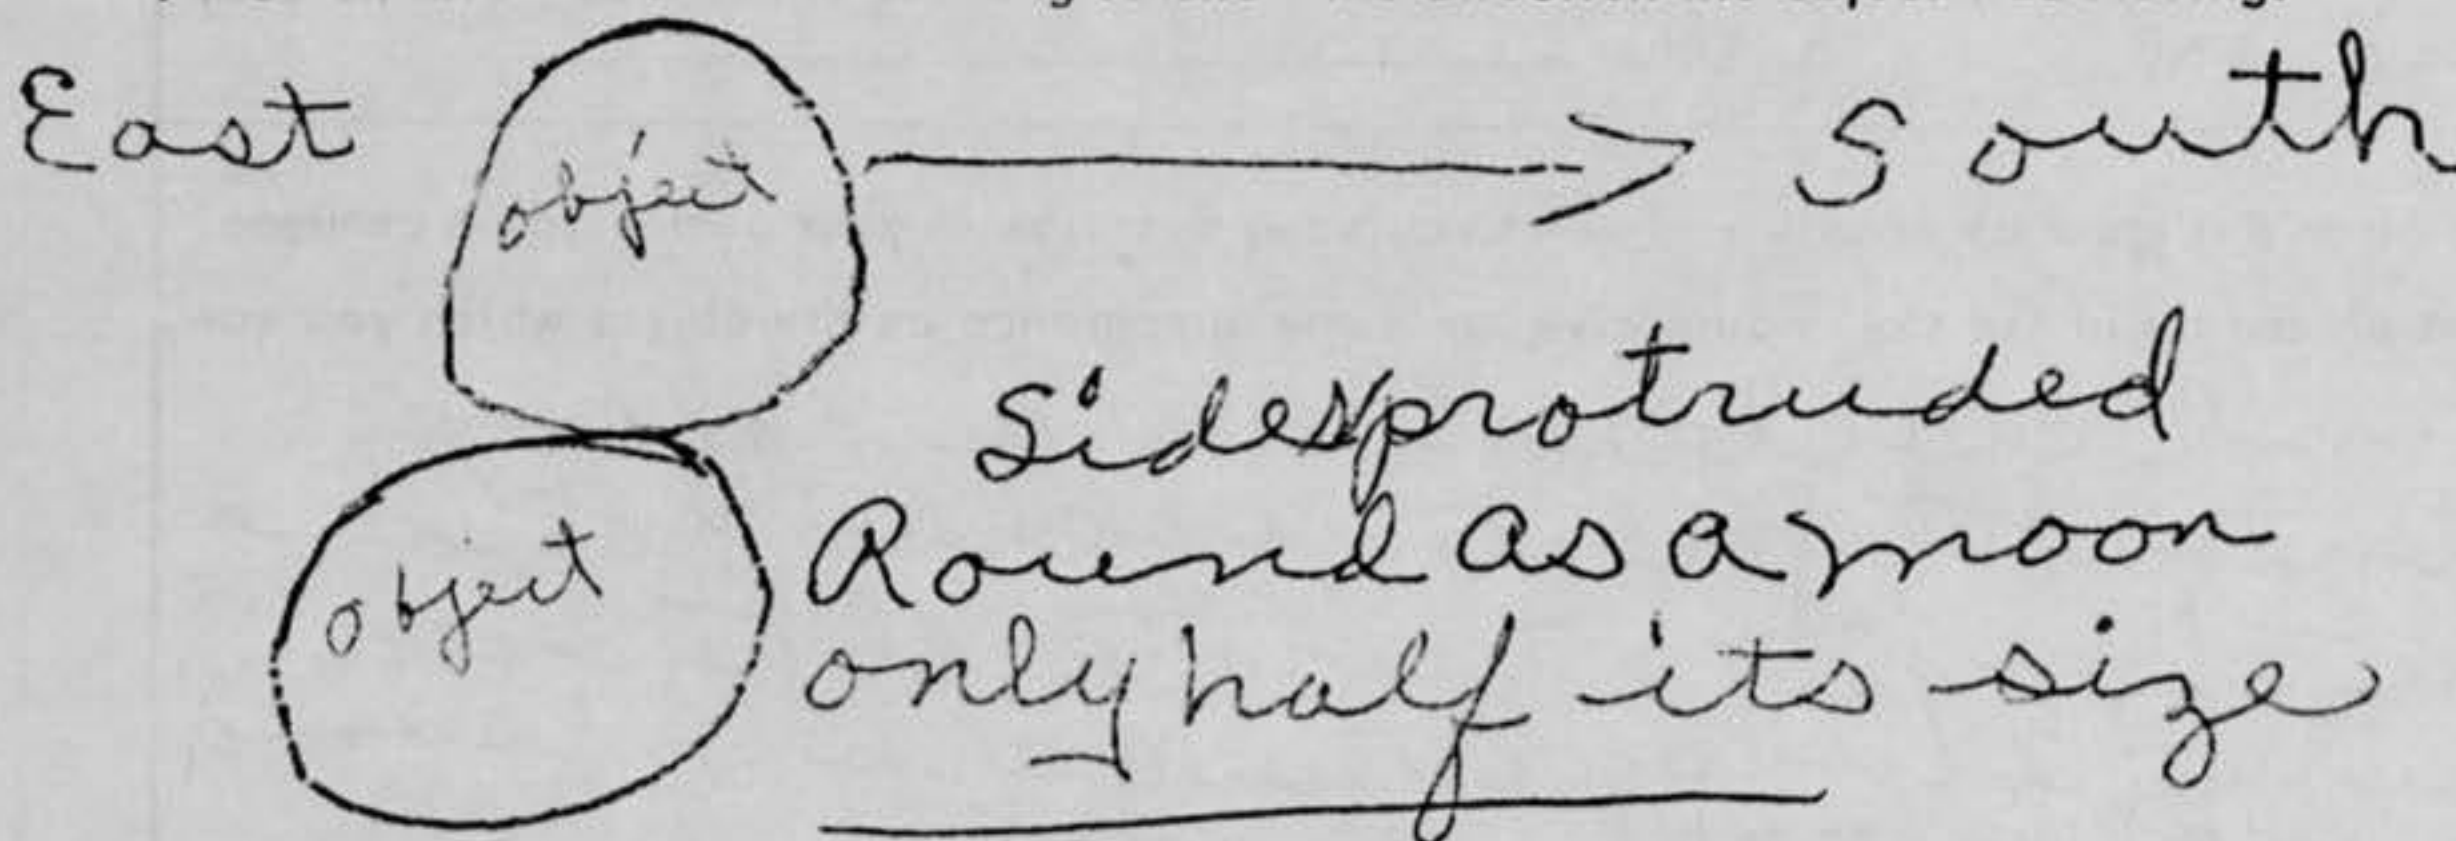 East object South
object
Sides protruded
Round as a moon
only half its size